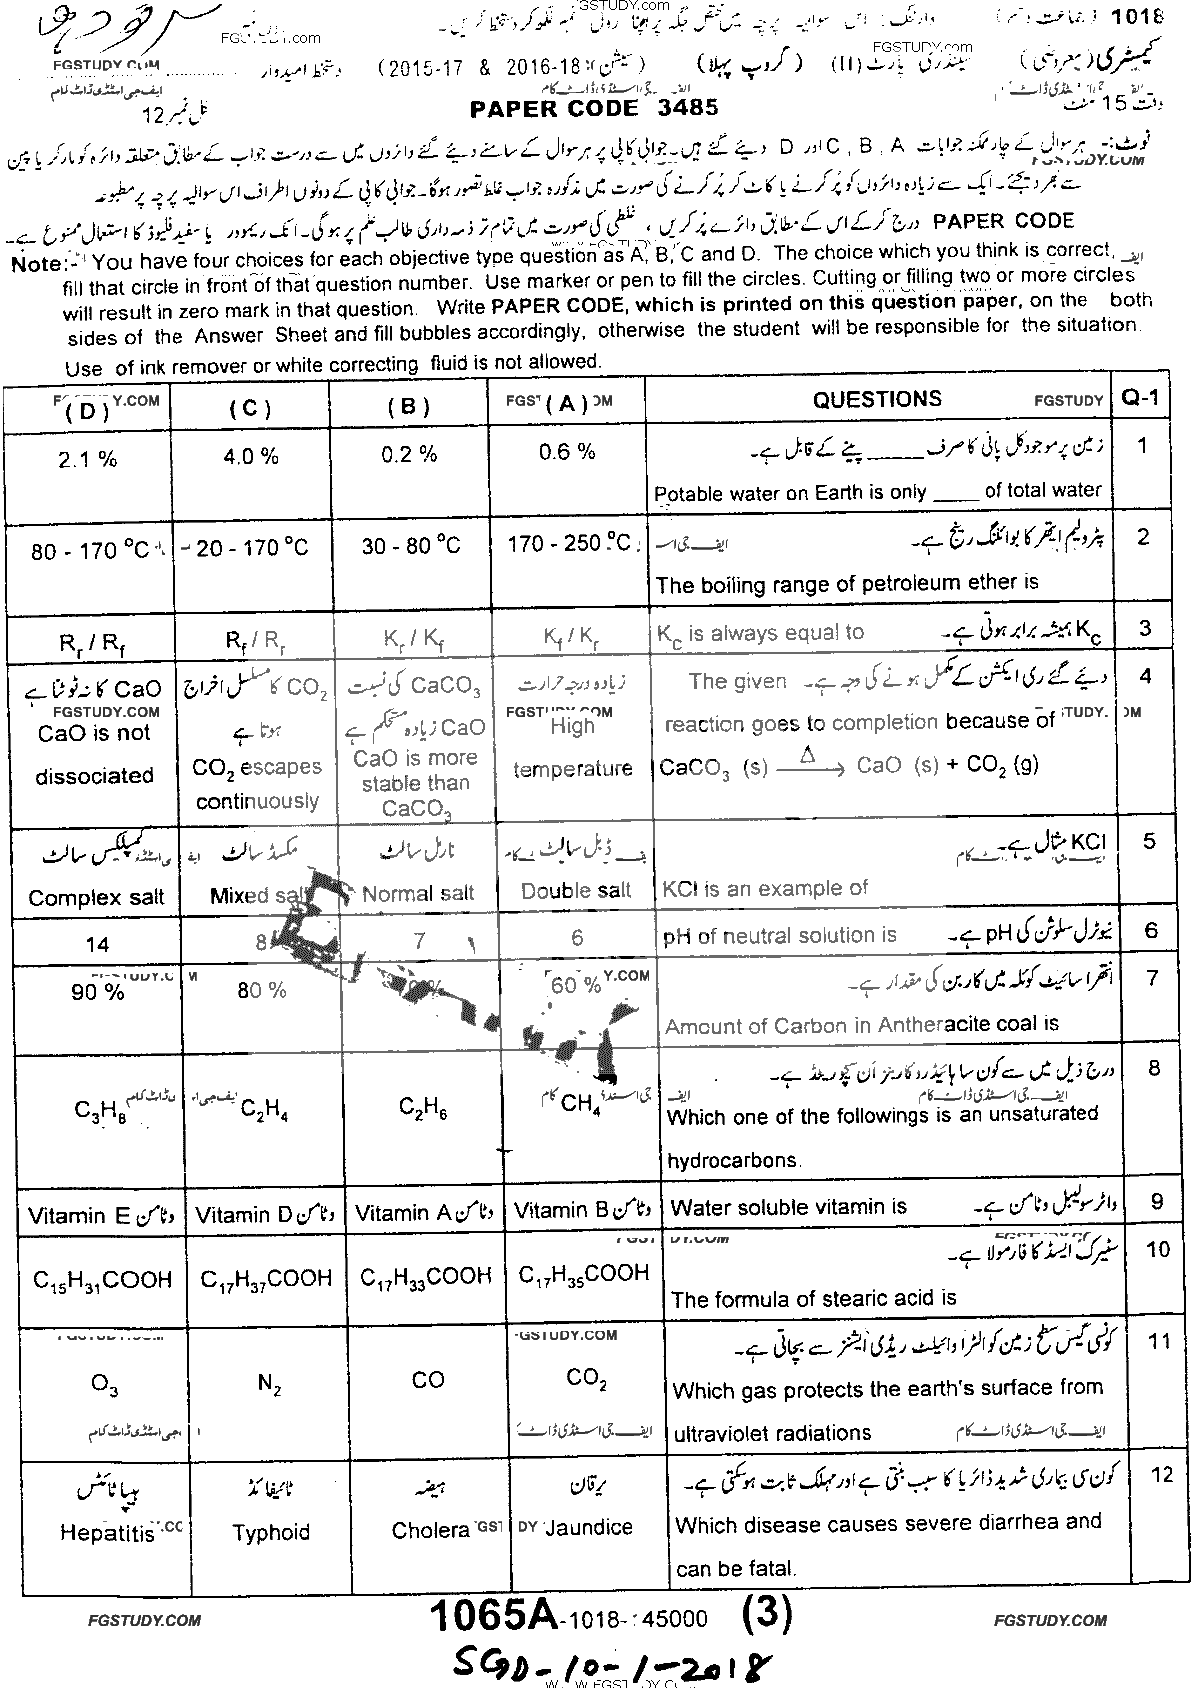 FGSTUDY.com
1018 (جماعت دہم) وارننگ: اس سوالیہ پرچہ میں مختص جگہ پر اپنا رول نمبر لکھ کر دستخط کریں۔
سرگودہا
FGSTUDY.com
FGSTUDY.com
FGSTUDY.COM
کیمسٹری (معروضی) سیکنڈری پارٹ (II) (گروپ پہلا) (سیشن 2016-18 & 2015-17) دستخط امیدوار
ایف جی اسٹڈی ڈاٹ کام
وقت 15 منٹ
PAPER CODE 3485
کل نمبر 12
نوٹ:- ہر سوال کے چار ممکنہ جوابات A ، B ، C اور D دیئے گئے ہیں۔ جوابی کاپی پر ہر سوال کے سامنے دیئے گئے دائروں میں سے درست جواب کے مطابق متعلقہ دائرہ کو مارکر یا پین
FGSTUDY.COM
سے بھر دیجئے۔ ایک سے زیادہ دائروں کو پُر کرنے یا کاٹ کر پُر کرنے کی صورت میں مذکورہ جواب غلط تصور ہوگا۔ جوابی کاپی کے دونوں اطراف اس سوالیہ پرچہ پر مطبوعہ
PAPER CODE درج کر کے اس کے مطابق دائرے پُر کریں ، غلطی کی صورت میں تمام تر ذمہ داری طالب علم پر ہوگی۔ انک ریموور یا سفید فلیوڈ کا استعمال ممنوع ہے۔
Note:- You have four choices for each objective type question as A, B, C and D. The choice which you think is correct,
fill that circle in front of that question number. Use marker or pen to fill the circles. Cutting or filling two or more circles
will result in zero mark in that question. Write PAPER CODE, which is printed on this question paper, on the both
sides of the Answer Sheet and fill bubbles accordingly, otherwise the student will be responsible for the situation.
Use of ink remover or white correcting fluid is not allowed.
(D) (C) (B) (A) QUESTIONS FGSTUDY Q-1
زمین پر موجود کل پانی کا صرف ____ پینے کے قابل ہے۔ 1
2.1 % 4.0 % 0.2 % 0.6 %
Potable water on Earth is only ____ of total water
پٹرولیم ایتھر کا بوائلنگ رینج ہے۔ 2
80 - 170 °C - 20 - 170 °C 30 - 80 °C 170 - 250 °C
The boiling range of petroleum ether is
Rr / Rf Rf / Rr Kr / Kf Kf / Kr Kc is always equal to Kc ہمیشہ برابر ہوتی ہے۔ 3
CaO کا نہ ٹوٹنا ہے CO2 کا مسلسل اخراج CaCO3 کی نسبت زیادہ درجہ حرارت The given دیئے گئے ری ایکشن کے مکمل ہونے کی وجہ ہے۔ 4
FGSTUDY.COM
CaO is not ہوتا ہے CaO زیادہ مستحکم ہے High reaction goes to completion because of
dissociated CO2 escapes CaO is more temperature CaCO3 (s) Δ → CaO (s) + CO2 (g)
continuously stable than
CaCO3
کمپلیکس سالٹ مکسڈ سالٹ نارمل سالٹ ڈبل سالٹ KCl مثال ہے۔ 5
Complex salt Mixed salt Normal salt Double salt KCl is an example of
14 8 7 6 pH of neutral solution is نیوٹرل سلوشن کی pH ہے۔ 6
انتھرا سائیٹ کوئلہ میں کاربن کی مقدار ہے۔ 7
90 % 80 % 60 %
Amount of Carbon in Antheracite coal is
درج ذیل میں سے کون سا ہائیڈروکاربنز اَن سیچوریٹڈ ہے۔ 8
C3H8 C2H4 C2H6 CH4
Which one of the followings is an unsaturated
hydrocarbons.
Vitamin E وٹامن Vitamin D وٹامن Vitamin A وٹامن Vitamin B وٹامن Water soluble vitamin is واٹر سولیبل وٹامن ہے۔ 9
سٹیرک ایسڈ کا فارمولا ہے۔ 10
C15H31COOH C17H37COOH C17H33COOH C17H35COOH
The formula of stearic acid is
FGSTUDY.COM
کونسی گیس سطح زمین کو الٹرا وائیلٹ ریڈی ایشنز سے بچاتی ہے۔ 11
O3 N2 CO CO2 Which gas protects the earth's surface from
ultraviolet radiations
ایف جی اسٹڈی ڈاٹ کام
کون سی بیماری شدید ڈائریا کا سبب بنتی ہے اور مہلک ثابت ہو سکتی ہے۔ 12
ہیپاٹائٹس ٹائیفائڈ ہیضہ یرقان
Hepatitis Typhoid Cholera Jaundice Which disease causes severe diarrhea and
can be fatal.
FGSTUDY.COM 1065A-1018-45000 (3) FGSTUDY.COM
SGD-10-1-2018
WWW.FGSTUDY.COM